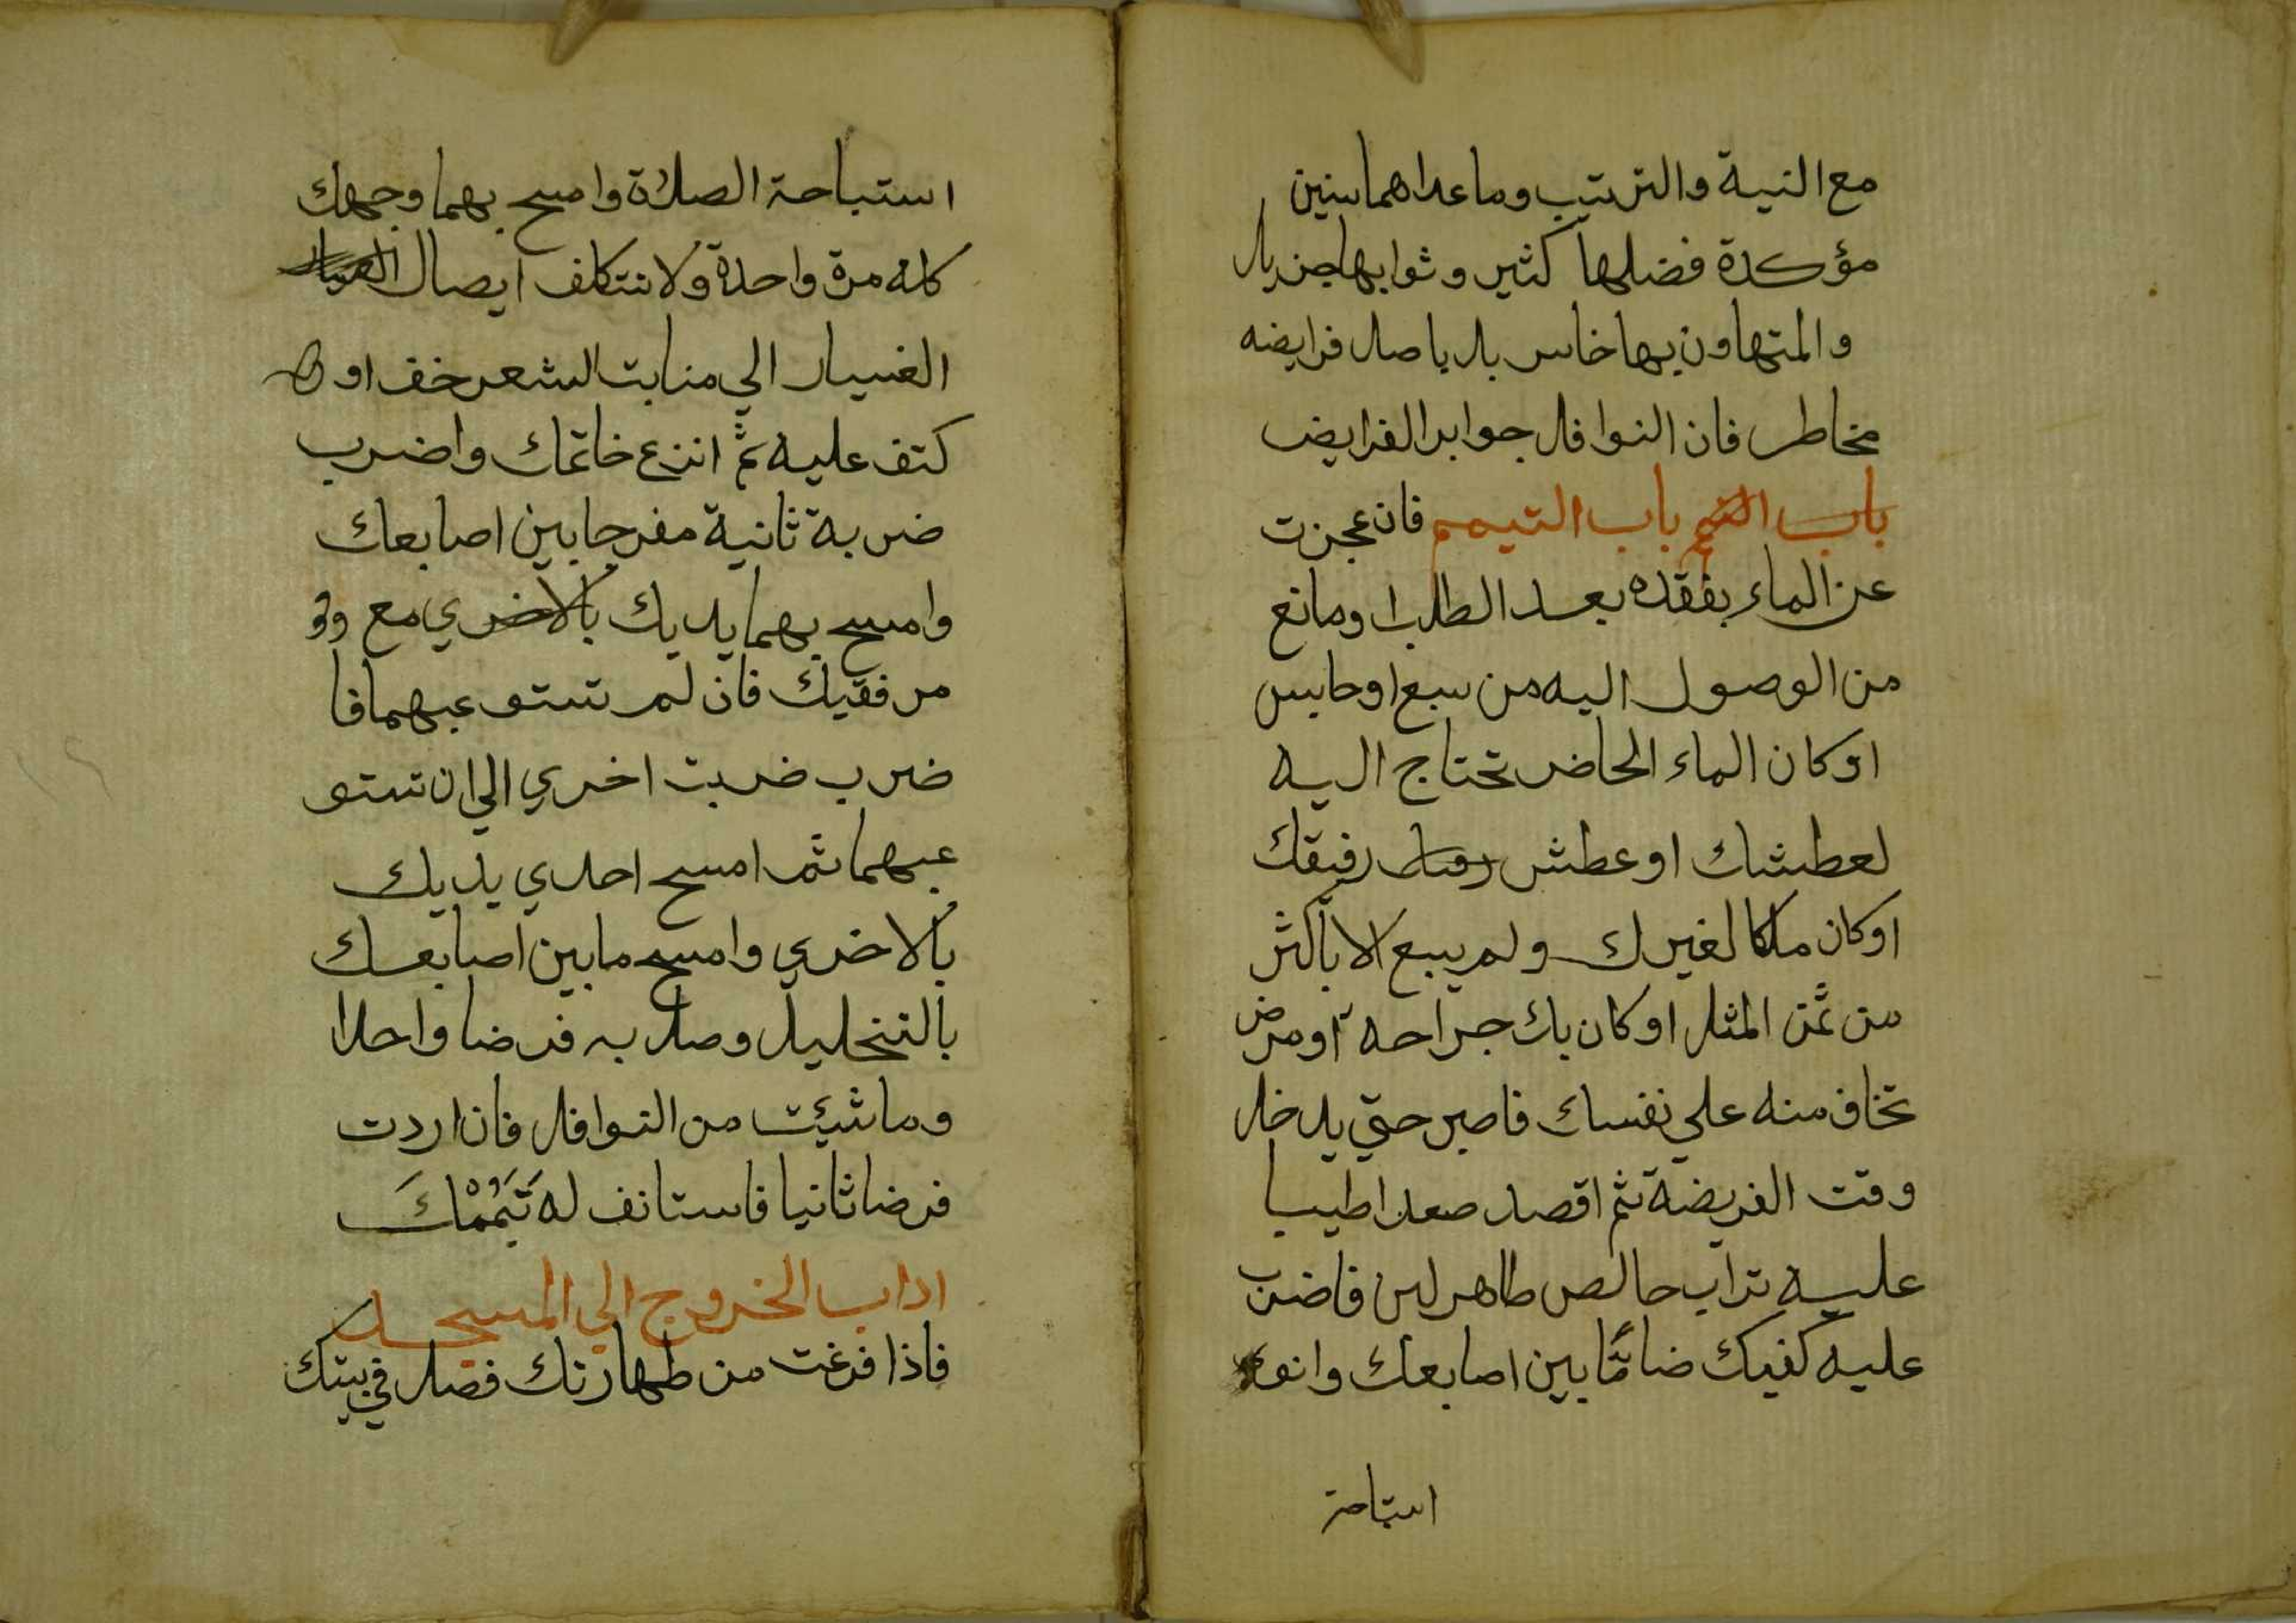 مع النية والترتيب وما عداهما سنين
مؤكدة فضلها كثير وثوابها جزيل
والمتهاون بها خاسر بل باصل فرايضه
مخاطر فان النوافل جوابر الفرايض
باب التيمم باب التيمم فان عجزت
عن الماء بفقده بعد الطلب او مانع
من الوصول اليه من سبع او حابس
او كان الماء الحاضر تحتاج اليه
لعطشك او عطش رفيقك
او كان ملكا لغيرك ولم يبع الا باكثر
من ثمن المثل او كان بك جراحه او مرض
تخاف منه علي نفسك فاصبر حتي يدخل
وقت الفريضة ثم اقصد صعدا طيبا
عليه تراب خالص طاهر لين فاضرب
عليه كفيك ضامّا بين اصابعك وانو
استباحة
استباحة الصلاة وامسح بهما وجهك
كله مرة واحدة ولا تتكلف ايصال
الغبار الي منابت الشعر خف او
كتف عليه ثم انزع خاتمك واضرب
ضربة ثانية مفرجا بين اصابعك
وامسح بهما يديك بالاخري مع
مرفقيك فان لم تستو عبهما فا
ضرب ضربت اخري الي ان تستو
عبهما ثم امسح احدي يديك
بالاخري وامسح ما بين اصابعك
بالتخليل وصل به فرضا واحدا
وما شيئت من النوافل فان اردت
فرضا ثانيا فاستانف له تَيَمُّمْكَ
اداب الخروج الي المسجد
فاذا فرغت من طهارتك فصل في بيتك